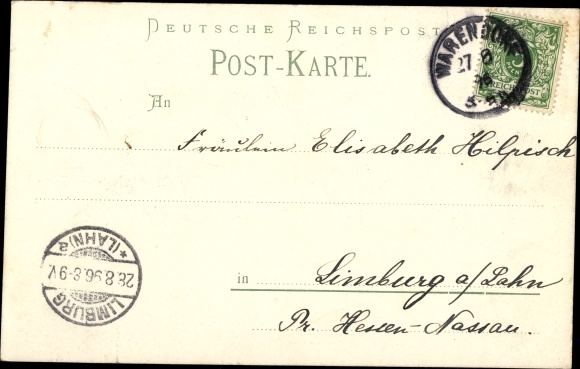 DEUTSCHE REICHSPOST
POST-KARTE.
WARENDORF
27 8
REICHSPOST
An
Fräulein Elisabeth Hilpisch
LIMBURG
28.8.96.8-9V.
*(LAHN)a
in Limburg a/Lahn
Pr. Hessen-Nassau.